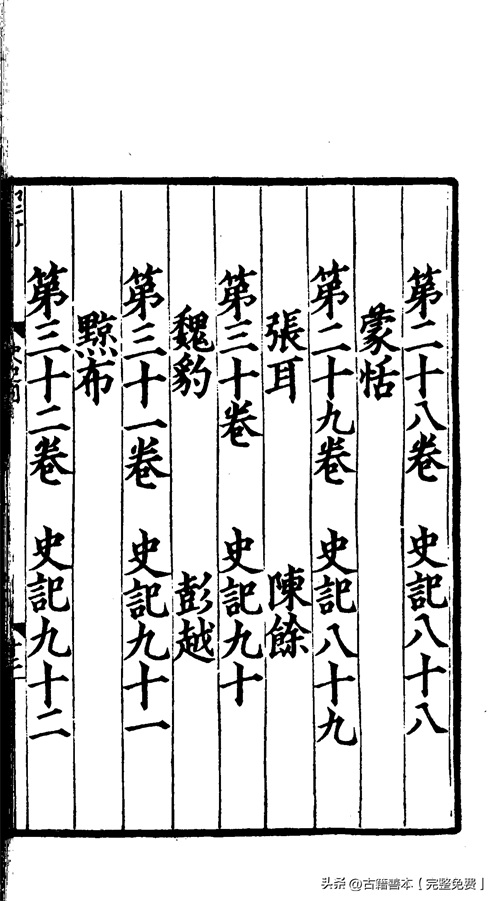 第二十八卷　史記八十八
蒙恬
第二十九卷　史記八十九
張耳　陳餘
第三十卷　史記九十
魏豹　彭越
第三十一卷　史記九十一
黥布
第三十二卷　史記九十二
头条 @古籍善本【完整免费】